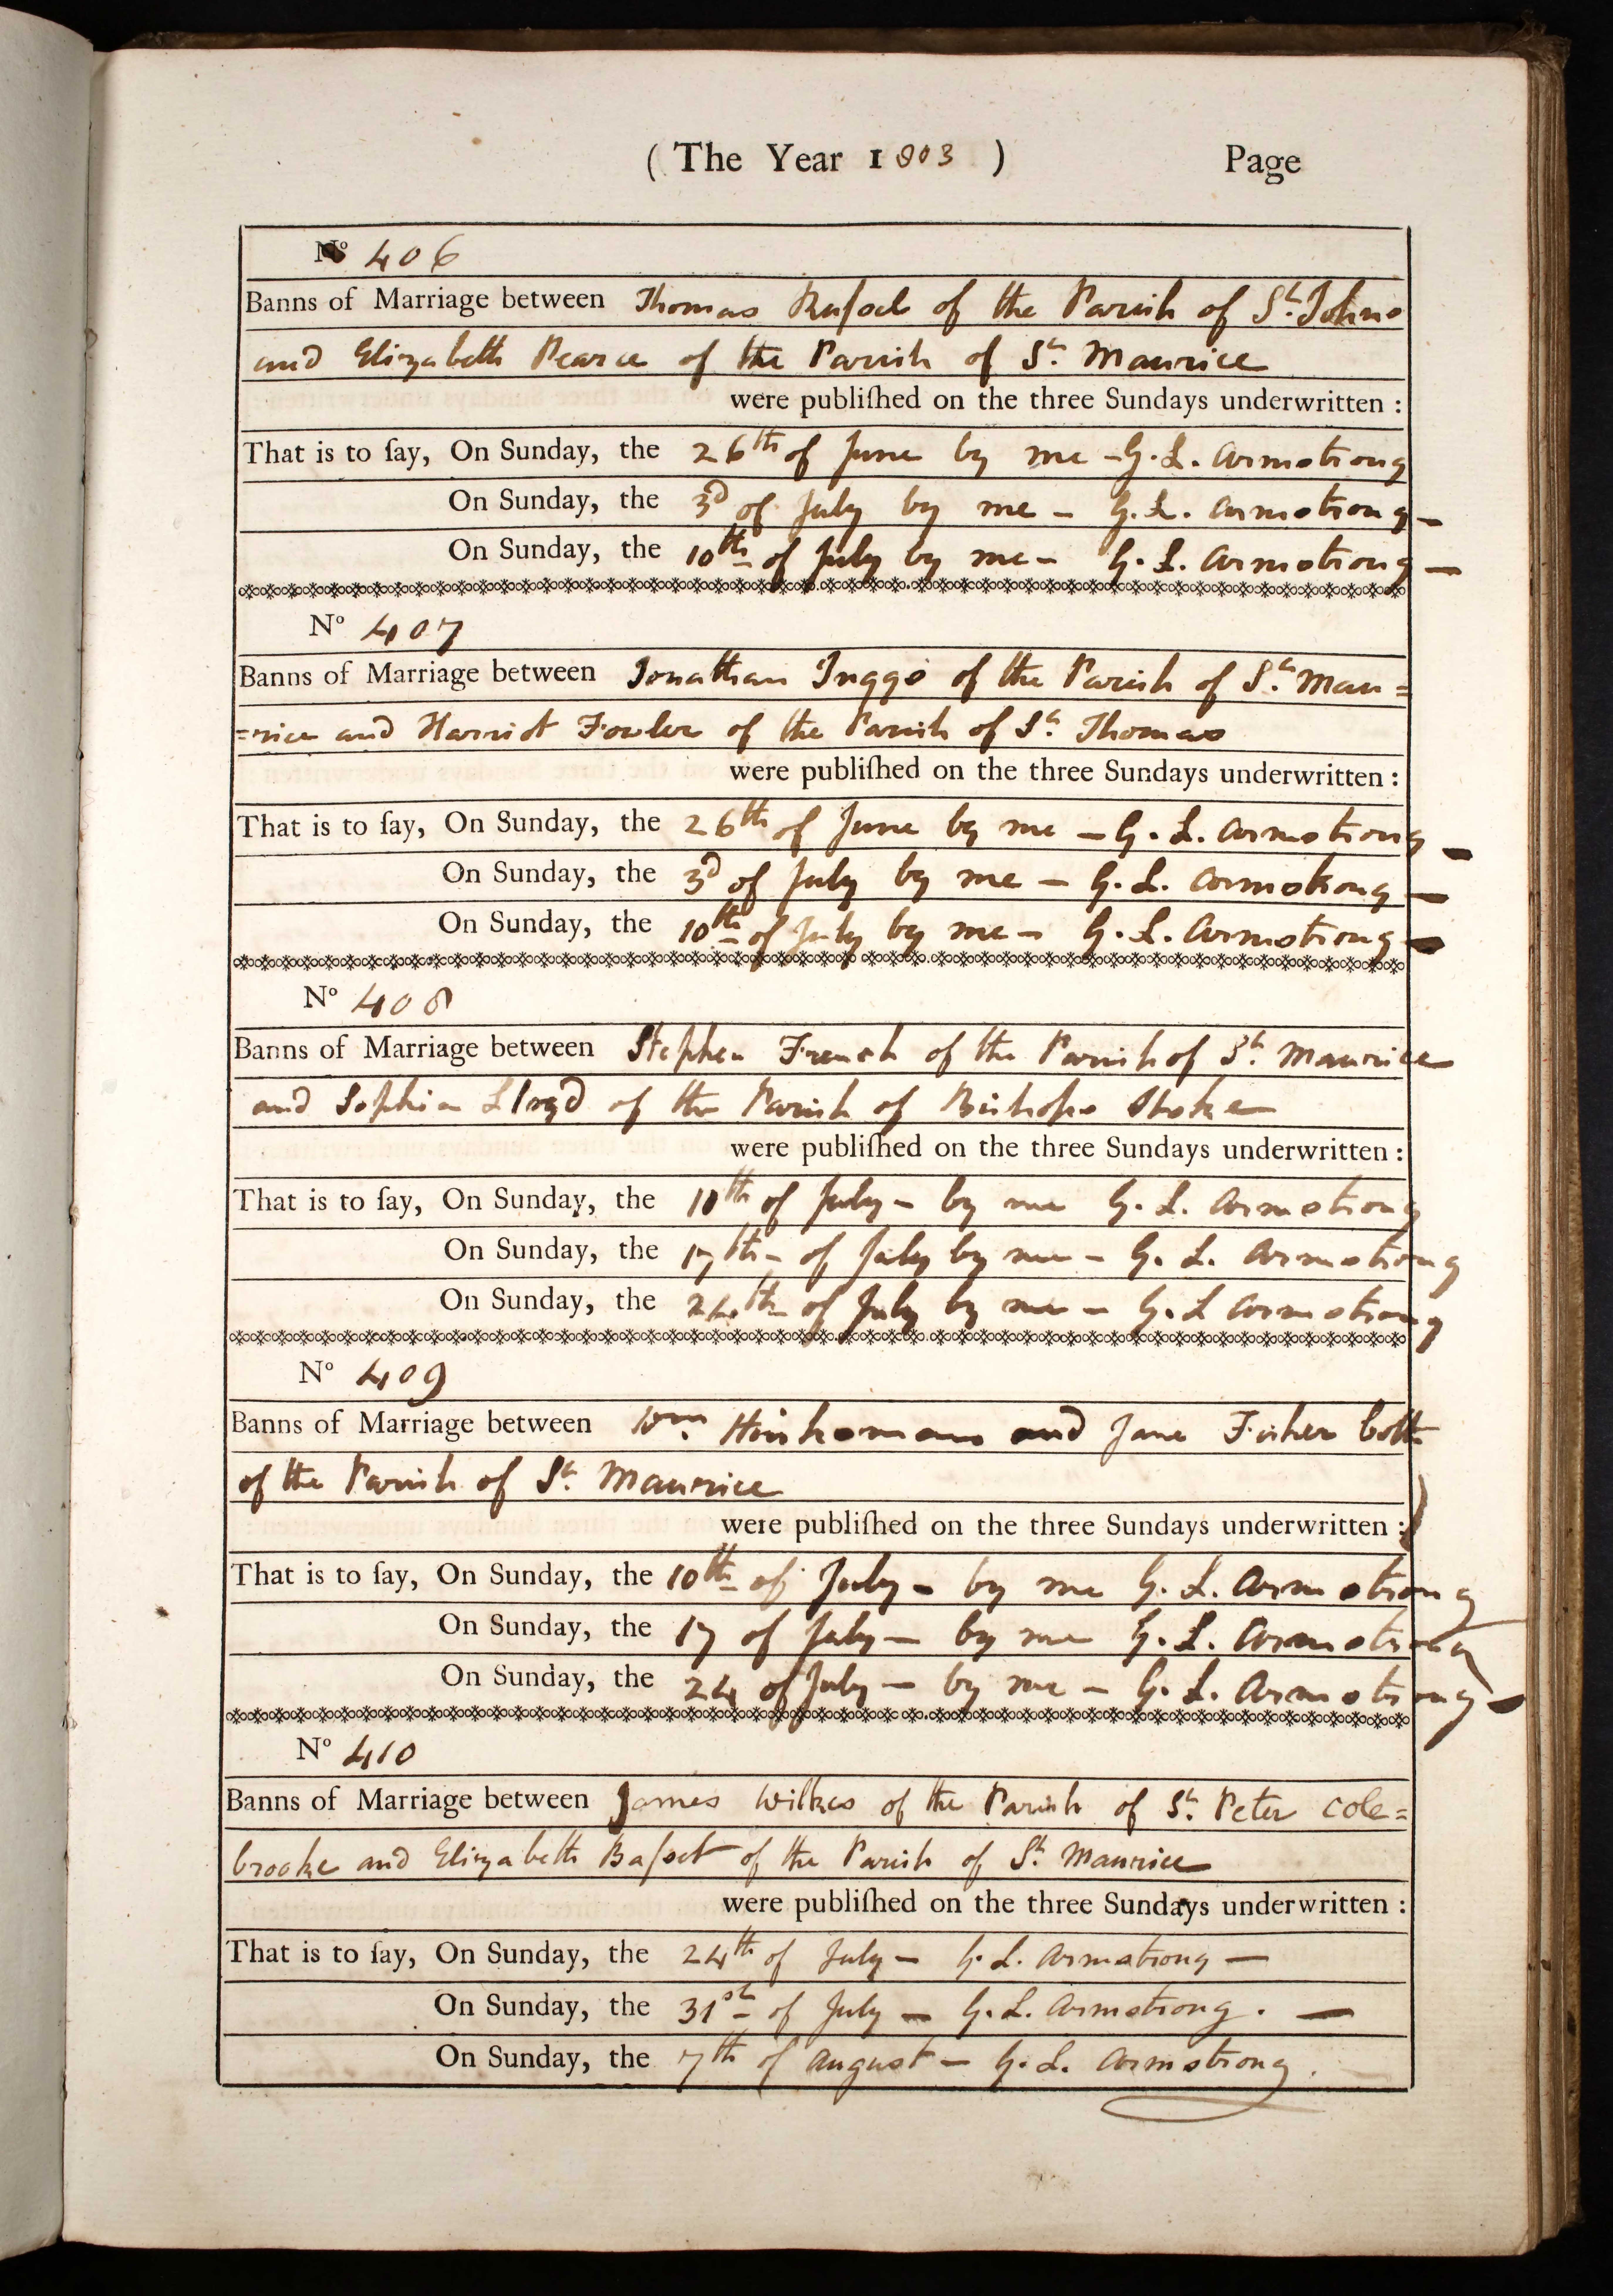 ( The Year 1803 ) Page
No 406
Banns of Marriage between Thomas Rusſsel of the Parish of St. Johns
and Elizabeth Pearce of the Parish of St. Maurice
were publiſhed on the three Sundays underwritten :
That is to ſay, On Sunday, the 26th of June by me - G. L. Armstrong
On Sunday, the 3d of July by me - G. L. Armstrong -
On Sunday, the 10th of July by me - G. L. Armstrong -
No 407
Banns of Marriage between Jonathan Inggs of the Parish of St. Mau=
=rice and Harriot Fowler of the Parish of St. Thomas
were publiſhed on the three Sundays underwritten :
That is to ſay, On Sunday, the 26th of June by me - G. L. Armstrong -
On Sunday, the 3d of July by me - G. L. Armstrong -
On Sunday, the 10th of July by me - G. L. Armstrong -
No 408
Banns of Marriage between Stephen French of the Parish of St. Maurice
and Sophia Lloyd of the Parish of Bishops Stoke
were publiſhed on the three Sundays underwritten :
That is to ſay, On Sunday, the 10th of July - by me G. L. Armstrong
On Sunday, the 17th - of July by me - G. L. Armstrong
On Sunday, the 24th of July by me - G. L Armstrong
No 409
Banns of Marriage between Wm. and Jane Fisher both
of the Parish of St. Maurice
were publiſhed on the three Sundays underwritten :
That is to ſay, On Sunday, the 10th of July - by me G. L. Armstrong
On Sunday, the 17 of July - by me G. L. Armstrong
On Sunday, the 24 of July - by me - G. L. Armstrong -
No 410
Banns of Marriage between James Wilkes of the Parish of St. Peter Cole=
brooke and Elizabeth Baſset of the Parish of St. Maurice
were publiſhed on the three Sundays underwritten :
That is to ſay, On Sunday, the 24th of July - G. L. Armstrong -
On Sunday, the 31st of July - G. L. Armstrong. -
On Sunday, the 7th of August - G. L. Armstrong.